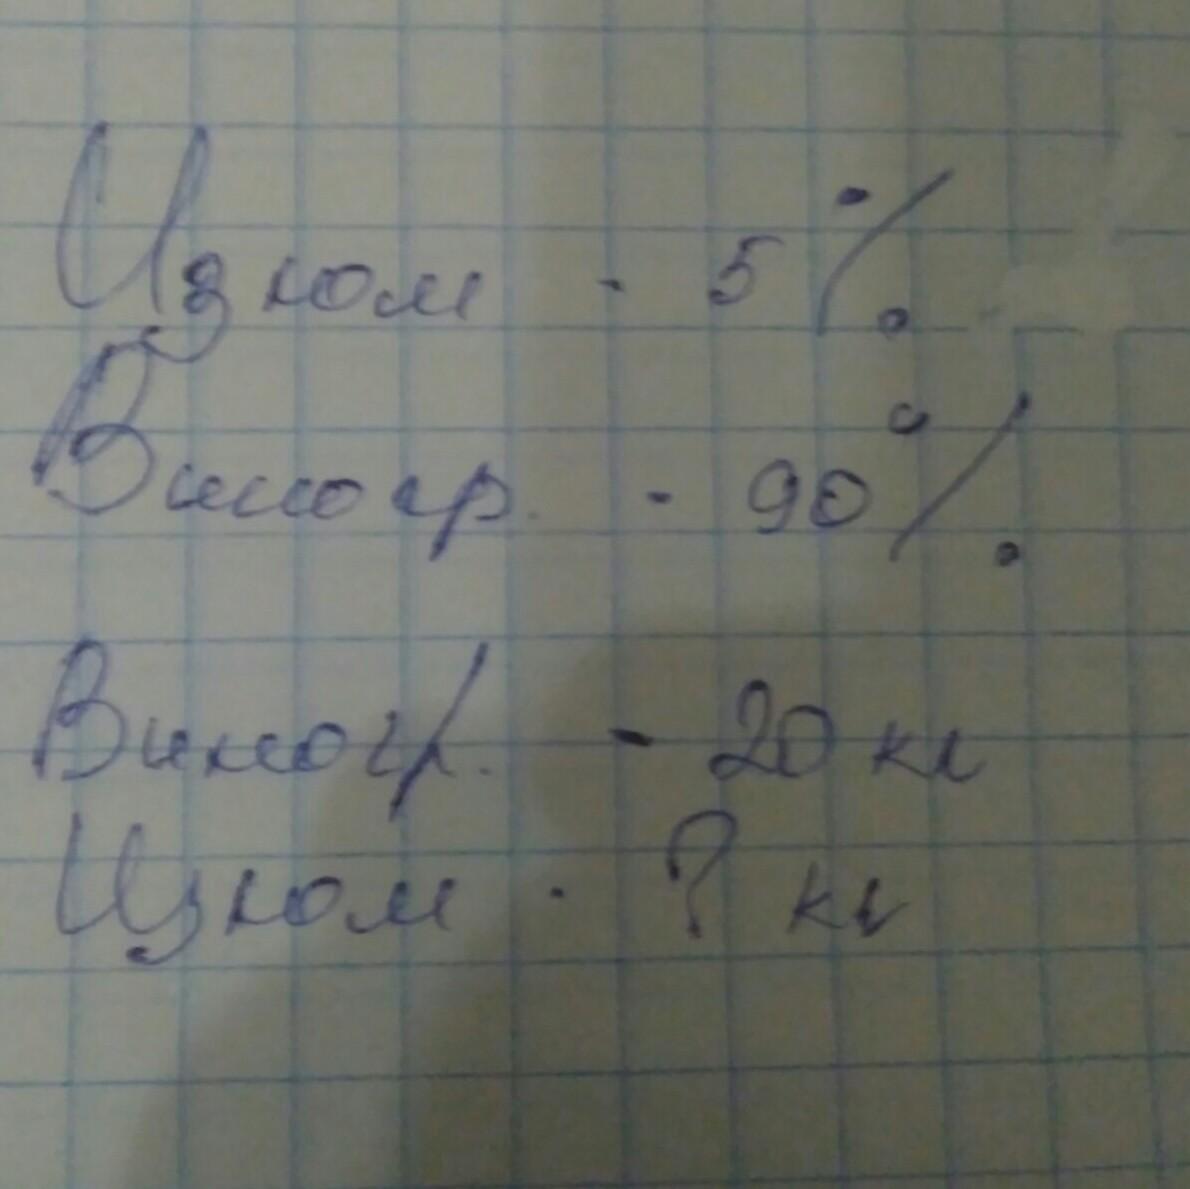 Изюм - 5 %
Виногр. - 90 %
Виногр. - 20 кг
Изюм - ? кг